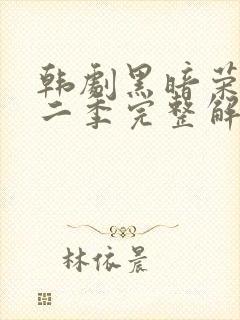 韩剧黑暗荣
二季完整解
林依晨